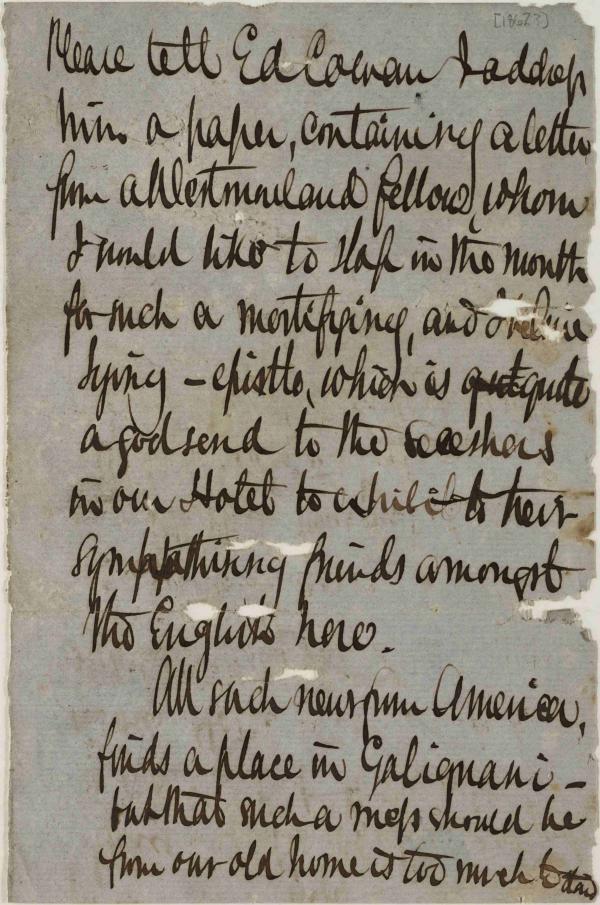 [1862?]
Please tell Ed Cowan I address
him a paper, containing a letter
from a Westmoreland fellow, whom
I would like to slap in the mouth
for such a mortifying, and I
lying - epistle, which is quite
a godsend to the seceshers
in our Hotel to exhibit to their
sympathising friends amongst
the English here.
All such news from America,
finds a place in Galignani -
but that such a mess should be
from our old home is too much to stand